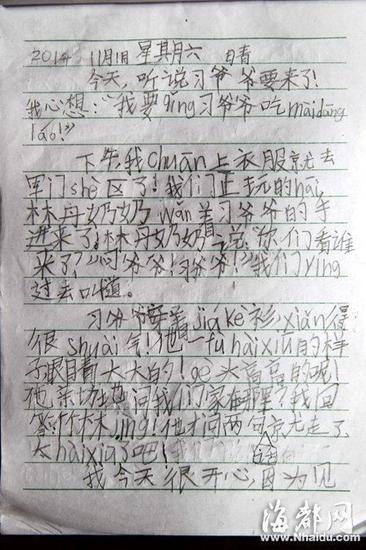 2014 11月1日 星期六 晴
今天,听说习爷爷要来了!
我心想:“我要qǐng习爷爷吃màidāng
láo!”
下午我chuān上衣服就去
军门shè区了!我们正玩的hāi,
林丹奶奶wǎn羊习爷爷的手
进来了,林丹奶奶说“你们看谁
来了”“习爷爷!习爷爷!”我们yíng
过去叫道。
习爷爷穿着jiákè衫,xiǎn得
很shuài气!他一fù hàixiū的样
子眼睛大大的!gè头高高的呢!
他 问我们家在哪里?我回
答竹林jìng!他才问两句话就走了
太hàixiū了吧!
我今天很开心,因为见
海都网
www.Nhaidu.com